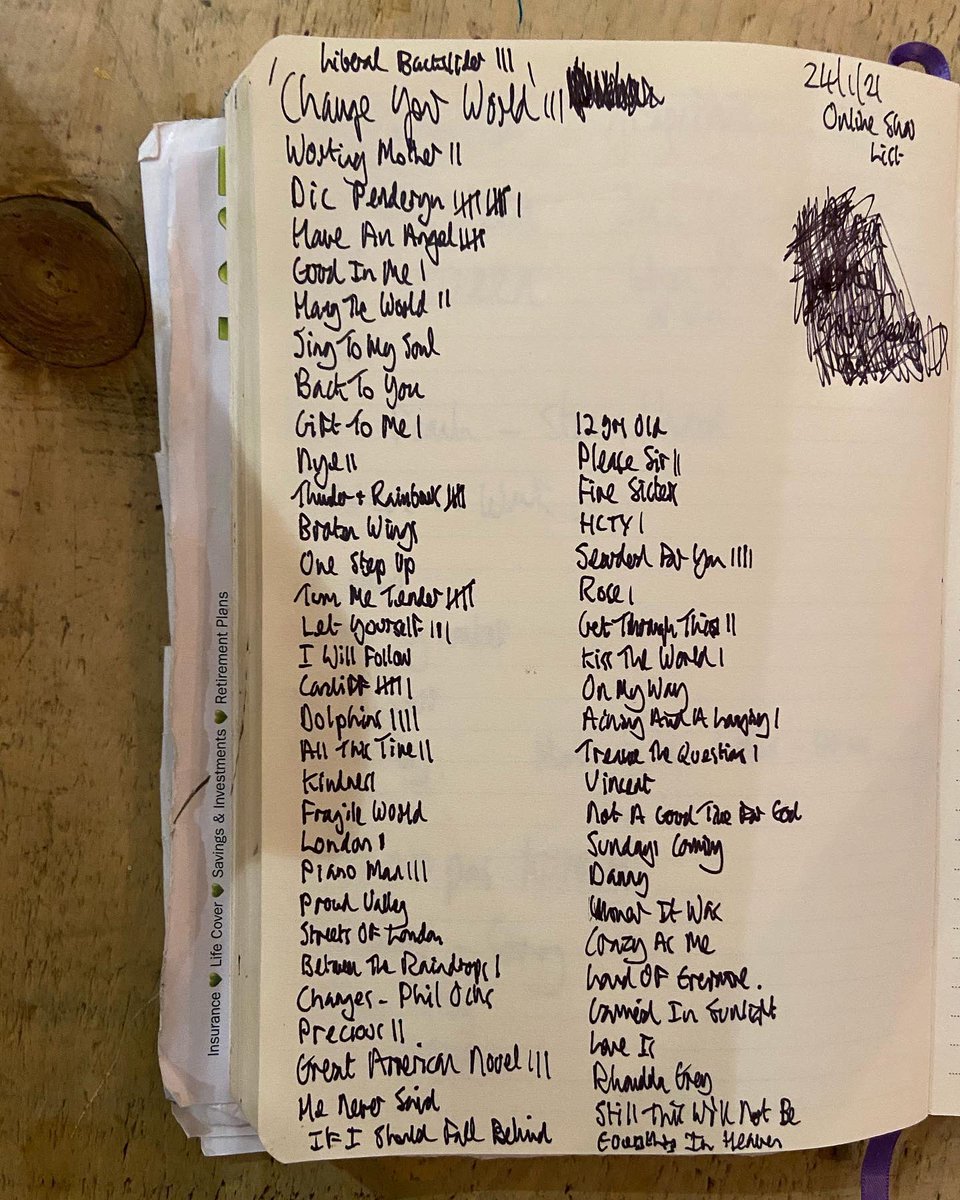 Liberal Backslider III
'Change Your World' III
24/1/21
Online Show
List
Working Mother II
Dic Penderyn IIII IIII I
Have An Angel IIII
Good In Me I
Marry The World II
Sing To My Soul
Back To You
Gift To Me I
Nye II
Thunder + Rainbows IIII
Broken Wings
One Step Up
Turn Me Tender IIII
Let Yourself III
I Will Follow
Cardiff IIII I
Dolphins IIII
All This Time II
Kindness I
Fragile World
London I
Piano Man III
Proud Valley
Streets Of London
Between The Raindrops I
Changes - Phil Ochs
Precious II
Great American Novel III
He Never Said
If I Should Fall Behind
12 yrs Old
Please Sir II
Fire Sister
HCTY I
Searched For You IIII
Rose I
Get Through This II
Kiss The World I
On My Way
Aching And A Longing I
Treasure The Questions I
Vincent
Not A Good Time For God
Sundays Coming
Danny
It Was
Crazy As Me
Land Of Evermore.
In Sunlight
Love Is
Rhondda Grey
Still This Will Not Be
In Heaven
Insurance Life Cover Savings & Investments Retirement Plans